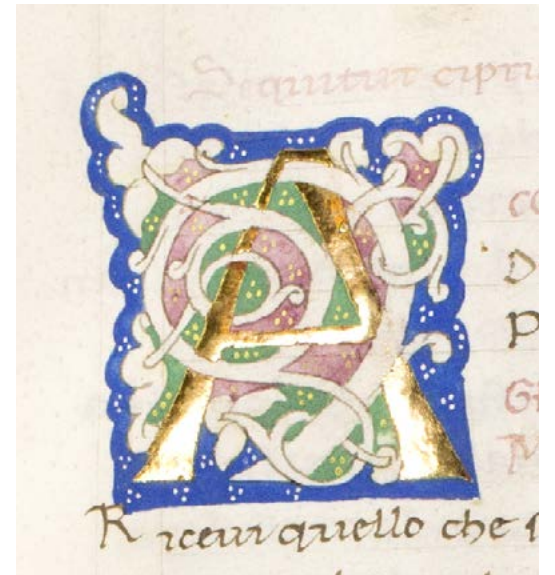 Sequitur cipri
co
A D
P
Gi
M
Riceui quello che s